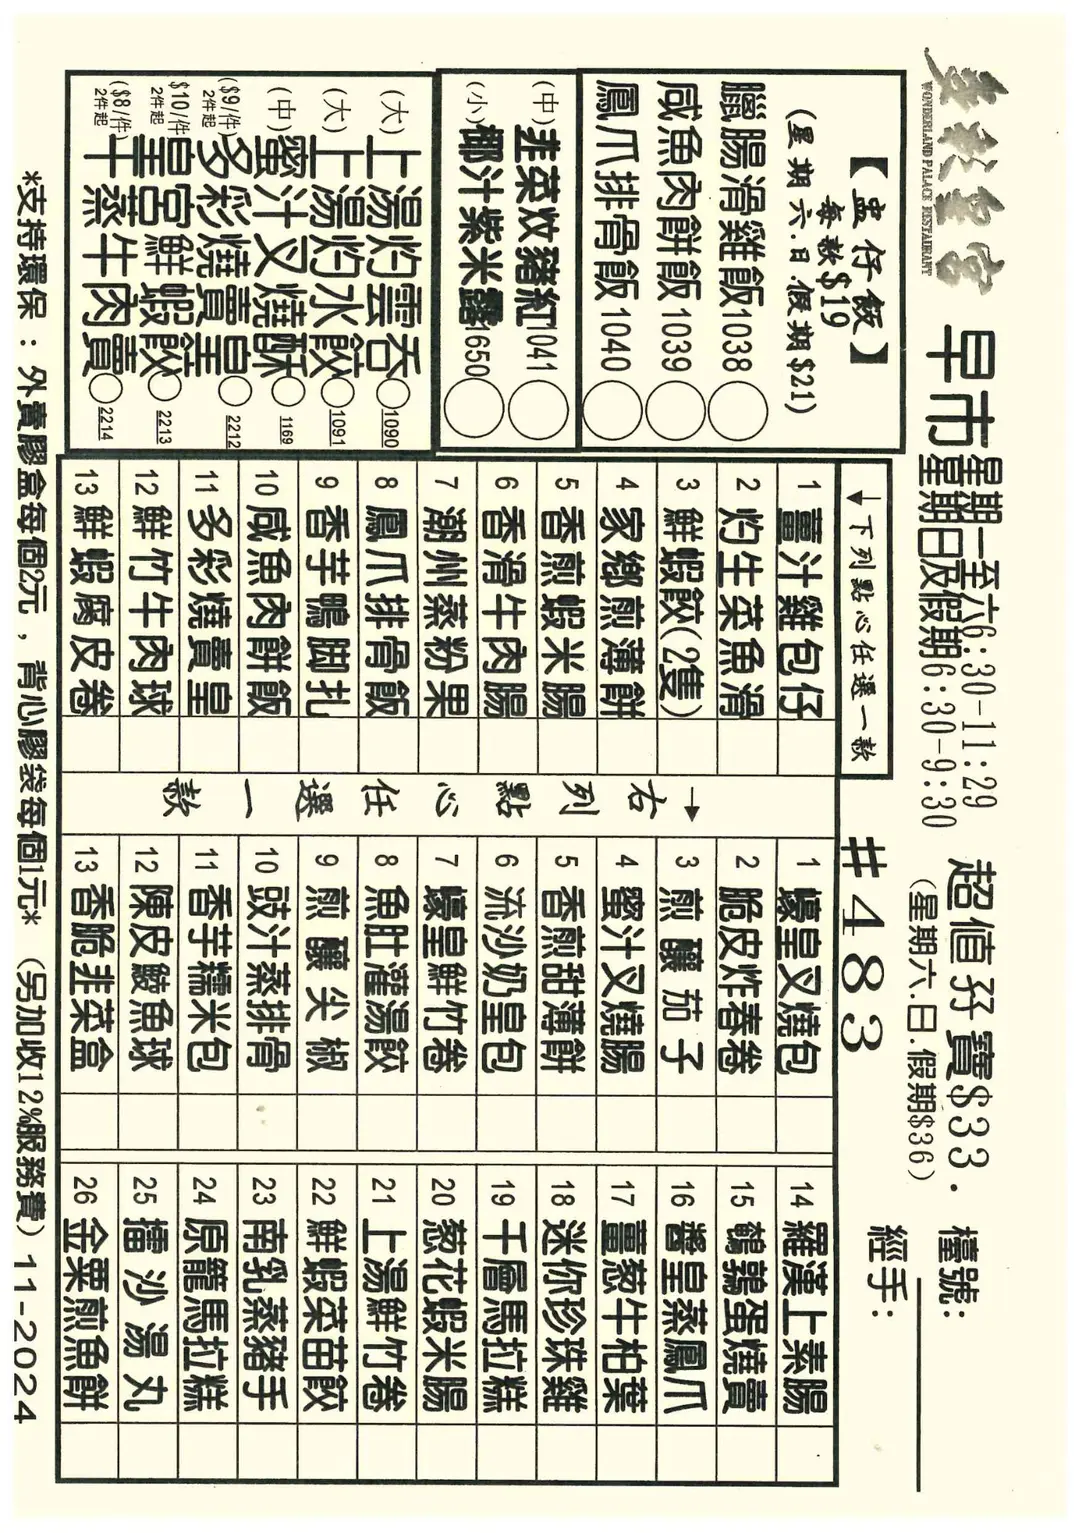 WONDERLAND PALACE RESTAURANT
早市
星期一至六6:30-11:29
星期日及假期6:30-9:30
超值孖寶$33.
(星期六.日.假期$36)
檯號:
經手:
#483
【盅仔飯】
每款$19
(星期六.日.假期$21)
臘腸滑雞飯1038
咸魚肉餅飯1039
鳳爪排骨飯1040
(中)韭菜炆豬紅1041
(小)椰汁紫米露1650
(大)上湯灼雲吞1090
(大)上湯灼水餃1091
(中)蜜汁叉燒酥1169
($9/件)2件起 多彩燒賣皇2212
$10/件 2件起 皇宮鮮蝦餃2213
($8/件)2件起 干蒸牛肉賣2214
↓下列點心任選一款
1 薑汁雞包仔
2 灼生菜魚滑
3 鮮蝦餃(2隻)
4 家鄉煎薄餅
5 香煎蝦米腸
6 香滑牛肉腸
7 潮州蒸粉果
8 鳳爪排骨飯
9 香芋鴨脚扎
10 咸魚肉餅飯
11 多彩燒賣皇
12 鮮竹牛肉球
13 鮮蝦腐皮卷
→右列點心任選一款
1 蠔皇叉燒包
2 脆皮炸春卷
3 煎釀茄子
4 蜜汁叉燒腸
5 香煎甜薄餅
6 流沙奶皇包
7 蠔皇鮮竹卷
8 魚肚灌湯餃
9 煎釀尖椒
10 豉汁蒸排骨
11 香芋糯米包
12 陳皮鯪魚球
13 香脆韭菜盒
14 羅漢上素腸
15 鵪鶉蛋燒賣
16 醬皇蒸鳳爪
17 薑葱牛柏葉
18 迷你珍珠雞
19 千層馬拉糕
20 葱花蝦米腸
21 上湯鮮竹卷
22 鮮蝦菜苗餃
23 南乳蒸豬手
24 原籠馬拉糕
25 擂沙湯丸
26 金粟煎魚餅
*支持環保：外賣膠盒每個2元，背心膠袋每個1元* (另加收12%服務費) 11-2024